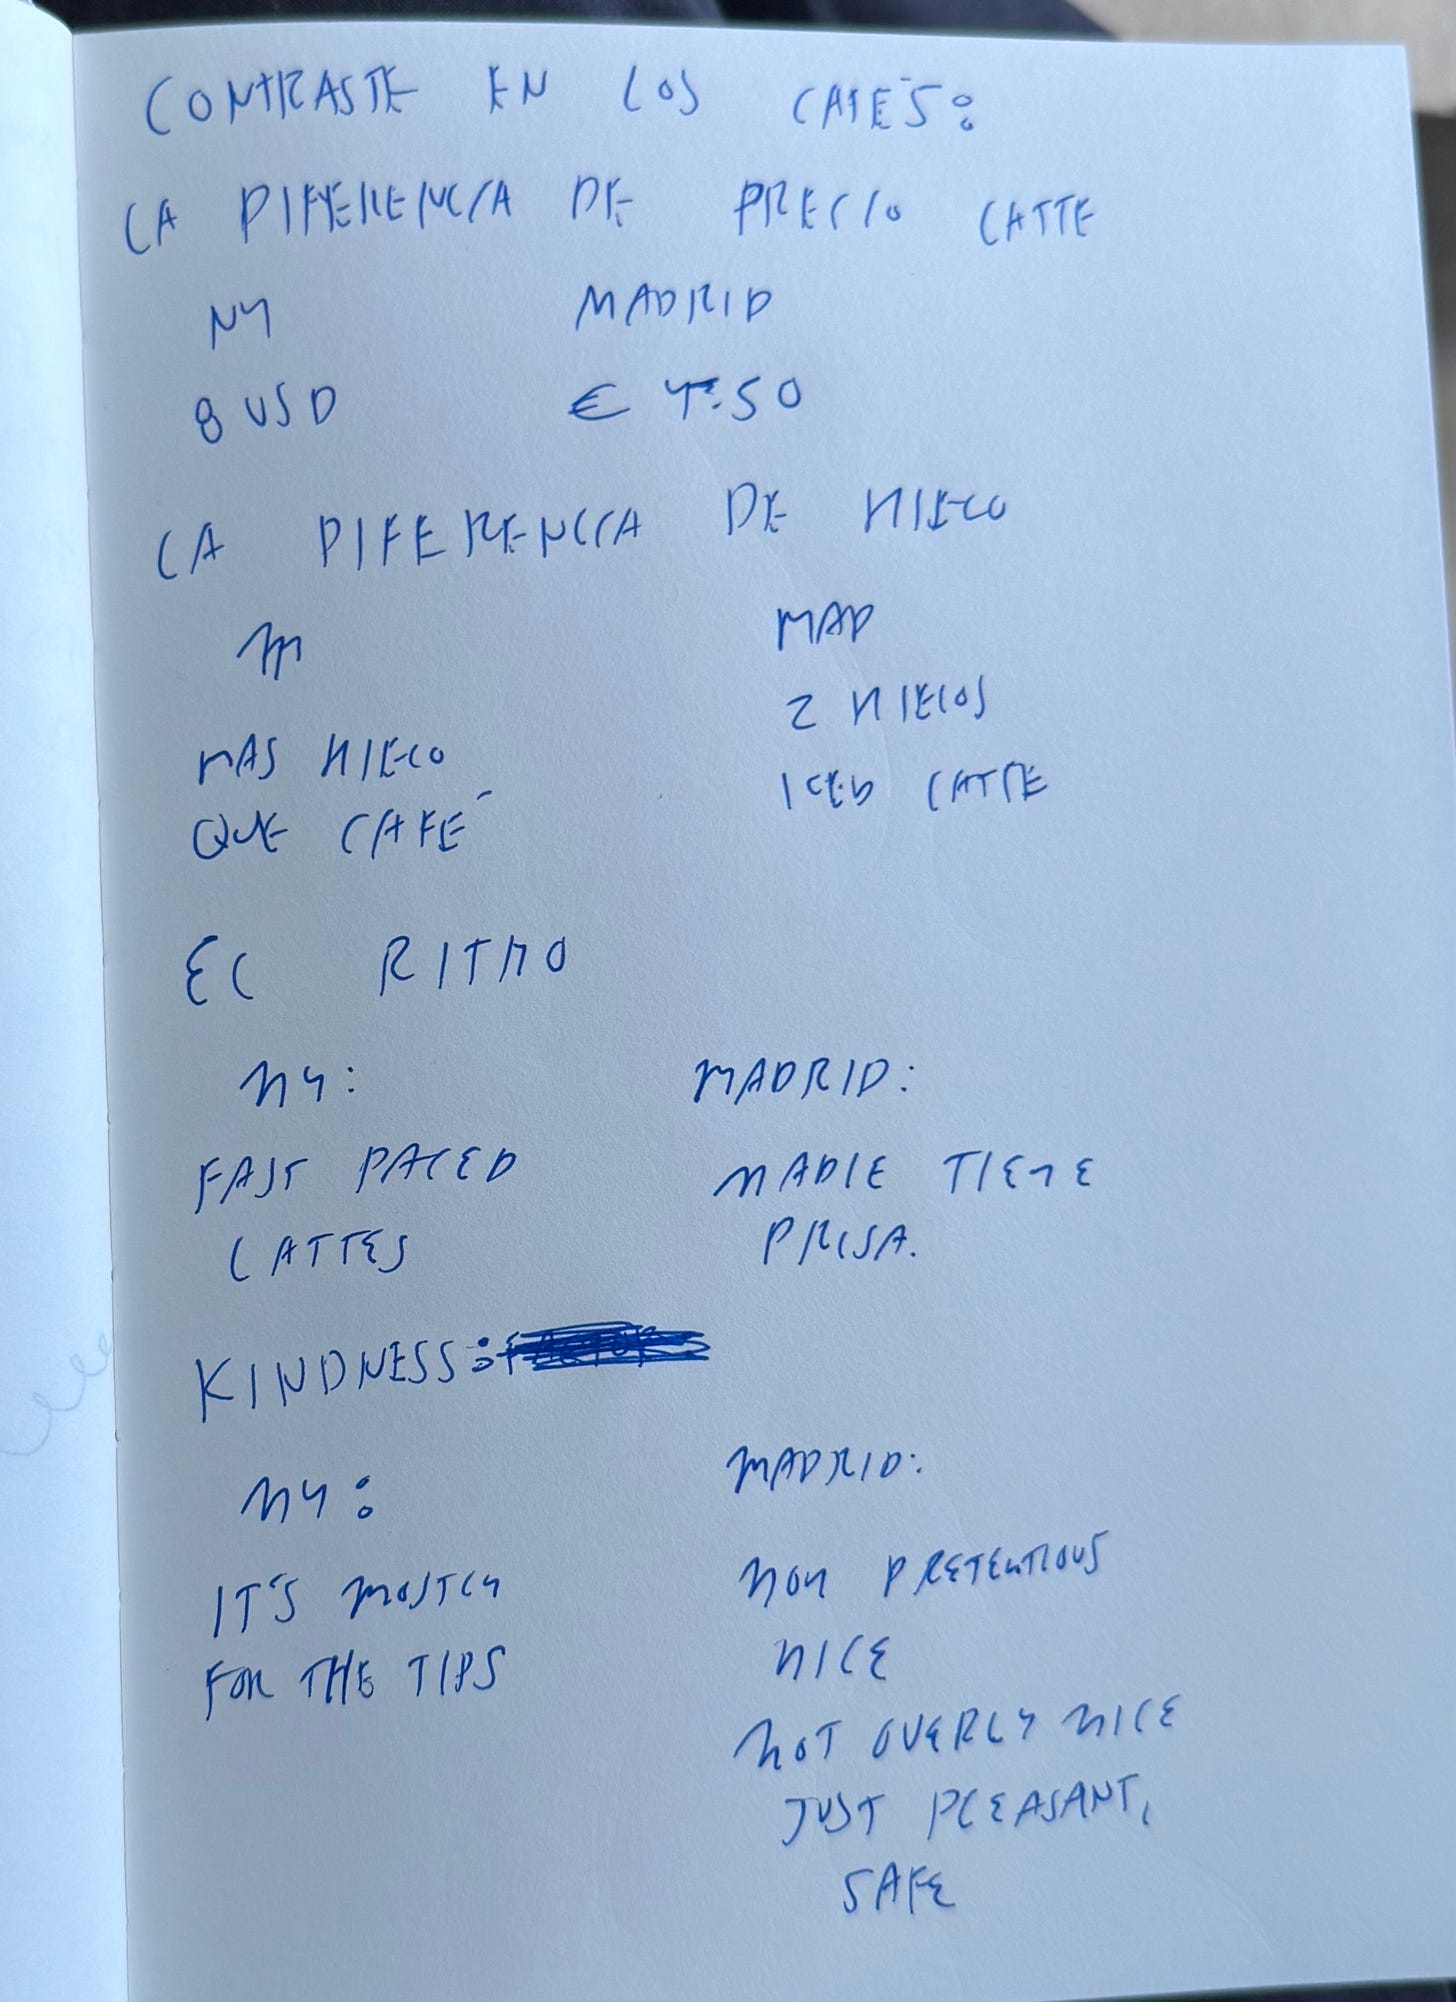 CONTRASTE EN LOS CAFÉS:
LA DIFERENCIA DE PRECIO LATTE
NY MADRID
8 USD € 4.50
LA DIFERENCIA DE HIELO
NY MAD
2 HIELOS
MAS HIELO ICED LATTE
QUE CAFÉ
EL RITMO
NY: MADRID:
FAST PACED NADIE TIENE
LATTES PRISA.
KINDNESS:
NY: MADRID:
IT'S MOSTLY NON PRETENTIOUS
FOR THE TIPS NICE
NOT OVERLY NICE
JUST PLEASANT,
SAFE